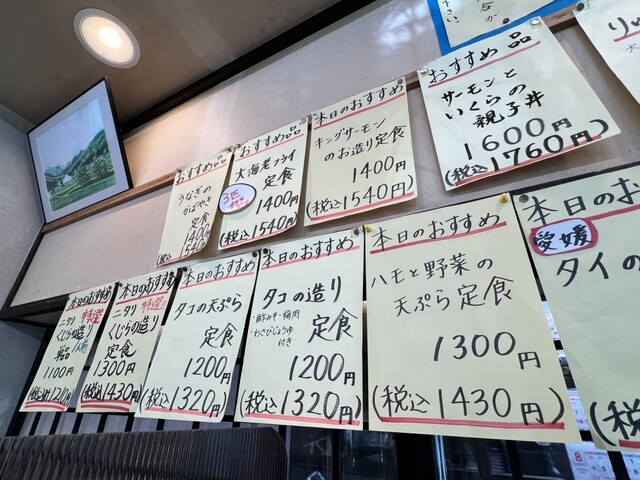 さい。
合が
おすすめ品
うなぎの
かばやき
定食
1400円
1540円
おすすめ品
大海老フライ
3匹
定食
1400円
(税込1540円)
本日のおすすめ
キングサーモン
のお造り定食
1400円
(税込1540円)
おすすめ 品
サーモンと
いくらの
親子丼
1600円
(税込1760円)
本日のおすすめ
ニタリ 特選
くじらの造り
単品
1100円
(税込1210円)
本日のおすすめ
ニタリ 特選
くじらの造り
定食
1300円
(税込1430円)
本日のおすすめ
タコの天ぷら
定食
1200円
(税込1320円)
本日のおすすめ
タコの造り
・酢みそ・梅肉
・わさびじょうゆ
付き
定食
1200円
(税込1320円)
本日のおすすめ
ハモと野菜の
天ぷら定食
1300円
(税込1430円)
本日のおす
愛媛
タイの
(税込